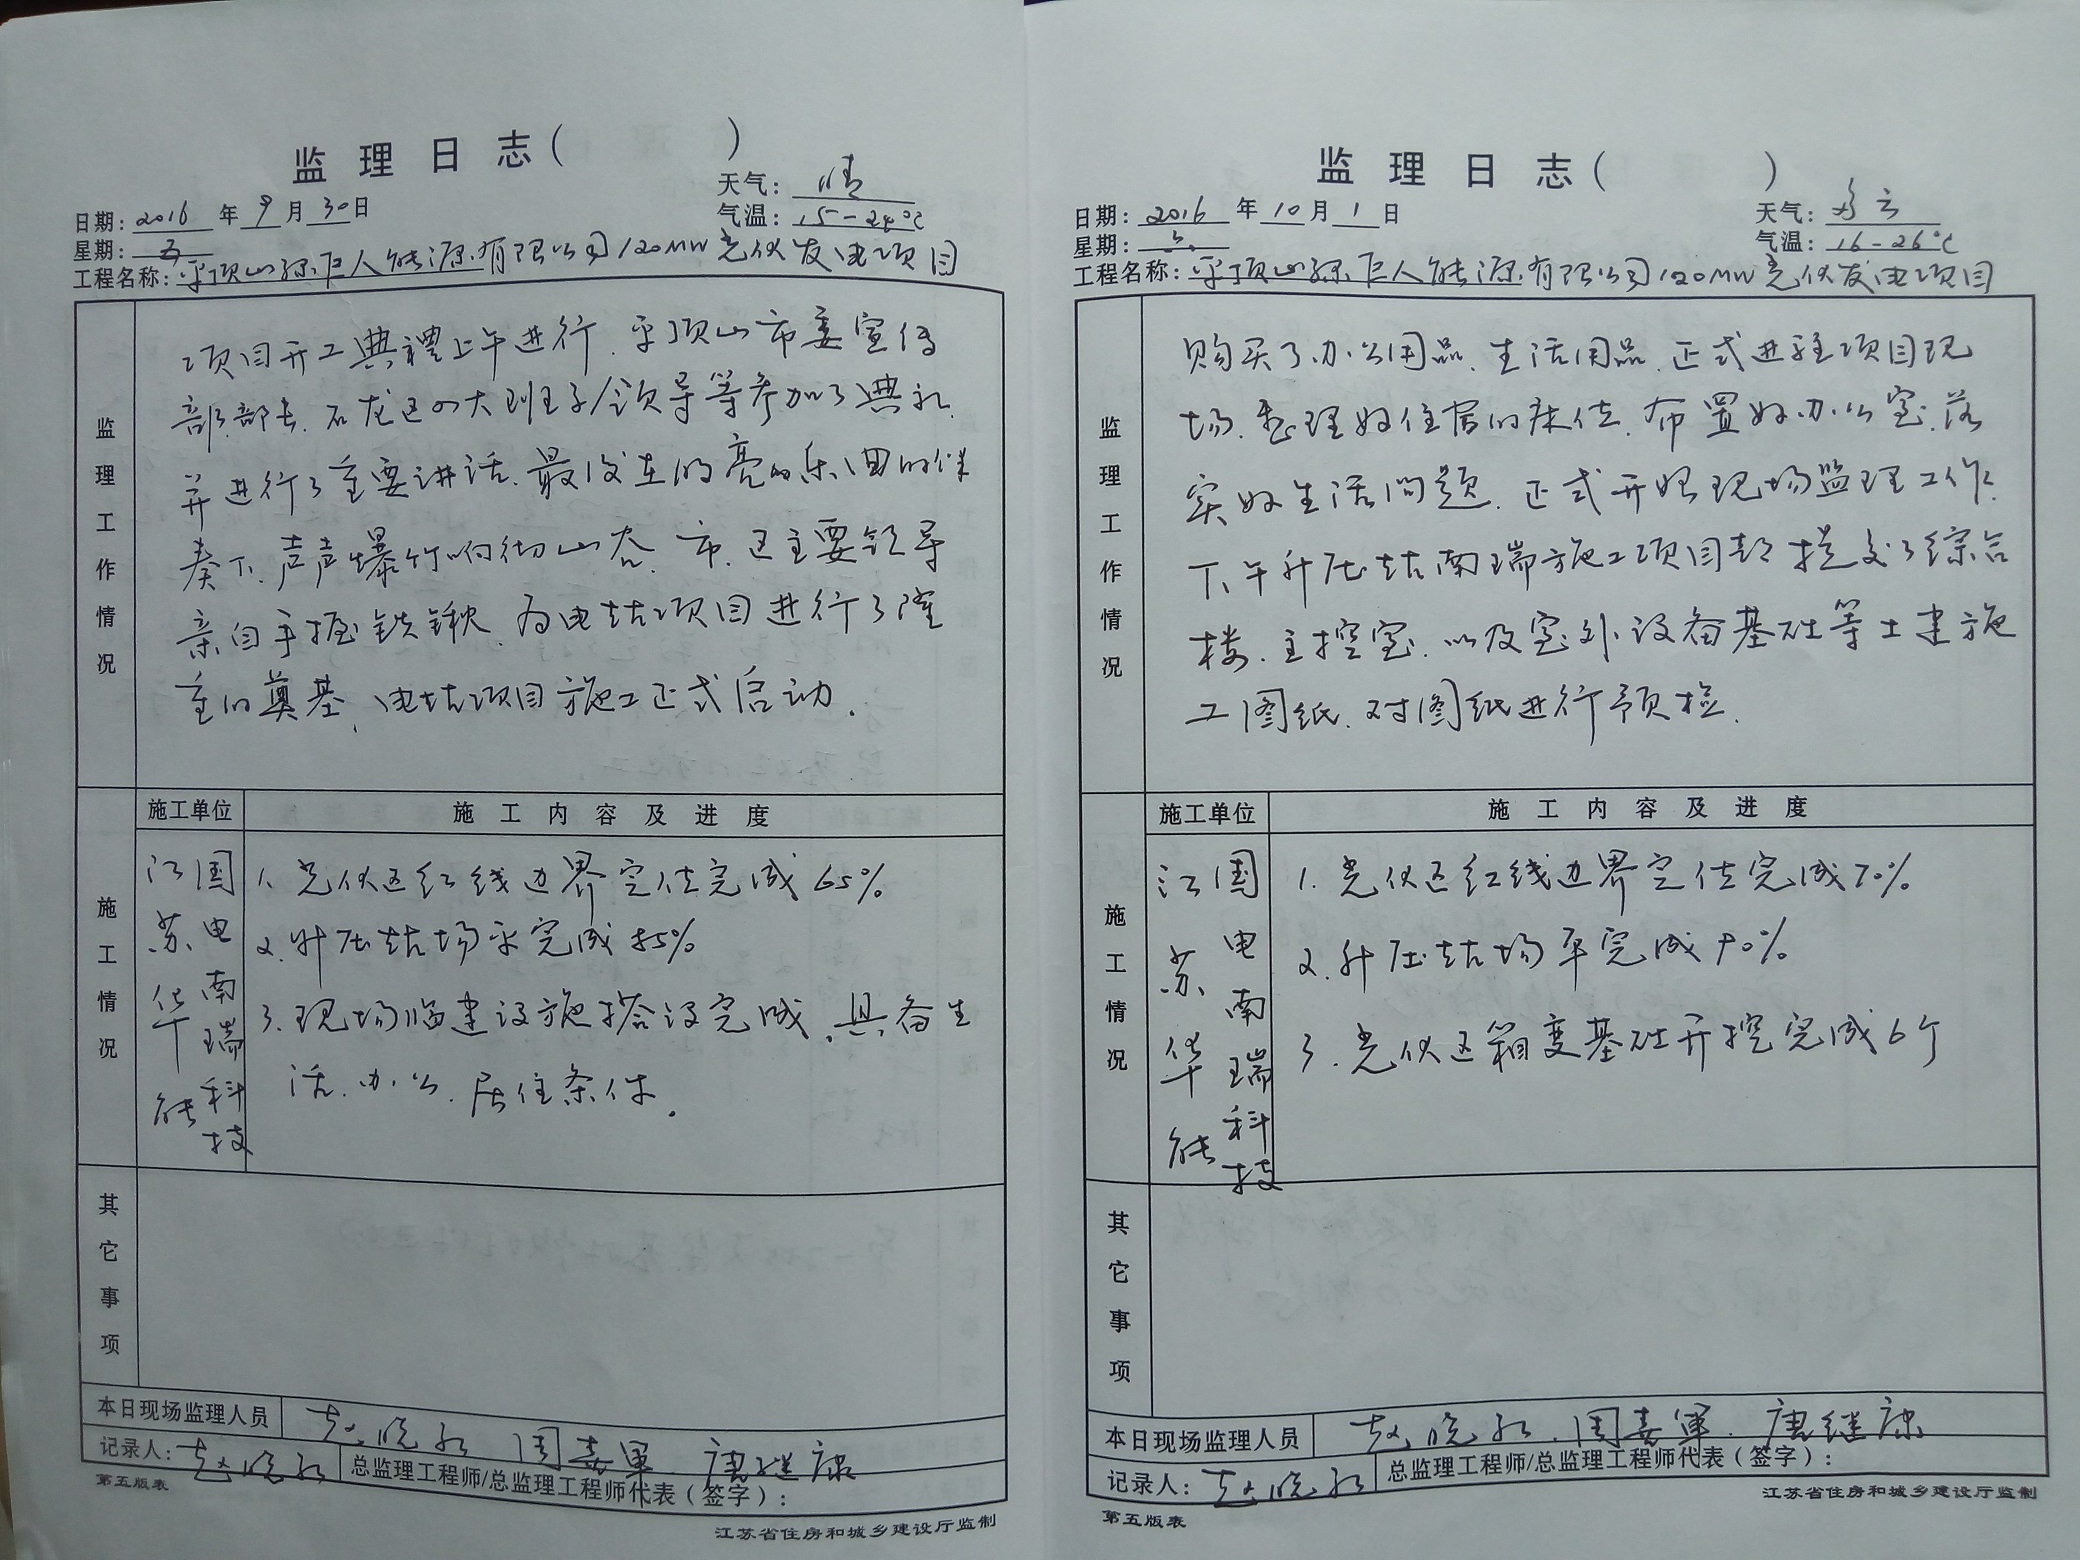 监理日志（　　）
天气：晴
日期：2016年9月30日
气温：15-24℃
星期：五
工程名称：平顶山绿巨人能源有限公司120MW光伏发电项目
监理工作情况
项目开工典禮上午进行.平顶山市委宣传
部部长.石龙区四大班子/领导等参加了典礼.
并进行了重要讲话.最后在嘹亮的乐曲的伴
奏下.声声爆竹响彻山谷.市.区主要领导
亲自手握铁锹.为电站项目进行了隆
重的奠基,电站项目施工正式启动.
施工单位 施工内容及进度
施工情况
江苏华能
国电南瑞科技
1.光伏区红线边界定位完成65%
2.升压站场平完成85%
3.现场临建设施搭设完成.具备生
活.办公.居住条件.
其它事项
本日现场监理人员 赵晓红 周委军.唐继康
记录人：赵晓红 总监理工程师/总监理工程师代表（签字）：
第五版表
江苏省住房和城乡建设厅监制
监理日志（　　）
日期：2016年10月1日
天气：多云
星期：
气温：16-26℃
工程名称：平顶山绿巨人能源有限公司120MW光伏发电项目
监理工作情况
购买了办公用品.生活用品.正式进驻项目现
场.整理好住宿的床位.布置好办公室.落
实好生活问题.正式开始现场监理工作.
下午升压站南瑞施工项目部提交了综合
楼.主控室.以及室外设备基础等土建施
工图纸.对图纸进行预检.
施工单位 施工内容及进度
施工情况
江苏华能
国电南瑞科技
1.光伏区红线边界定位完成70%
2.升压站场平完成90%
3.光伏区箱变基础开挖完成6个
其它事项
本日现场监理人员 赵晓红.周委军.唐继康
记录人：赵晓红 总监理工程师/总监理工程师代表（签字）：
第五版表
江苏省住房和城乡建设厅监制